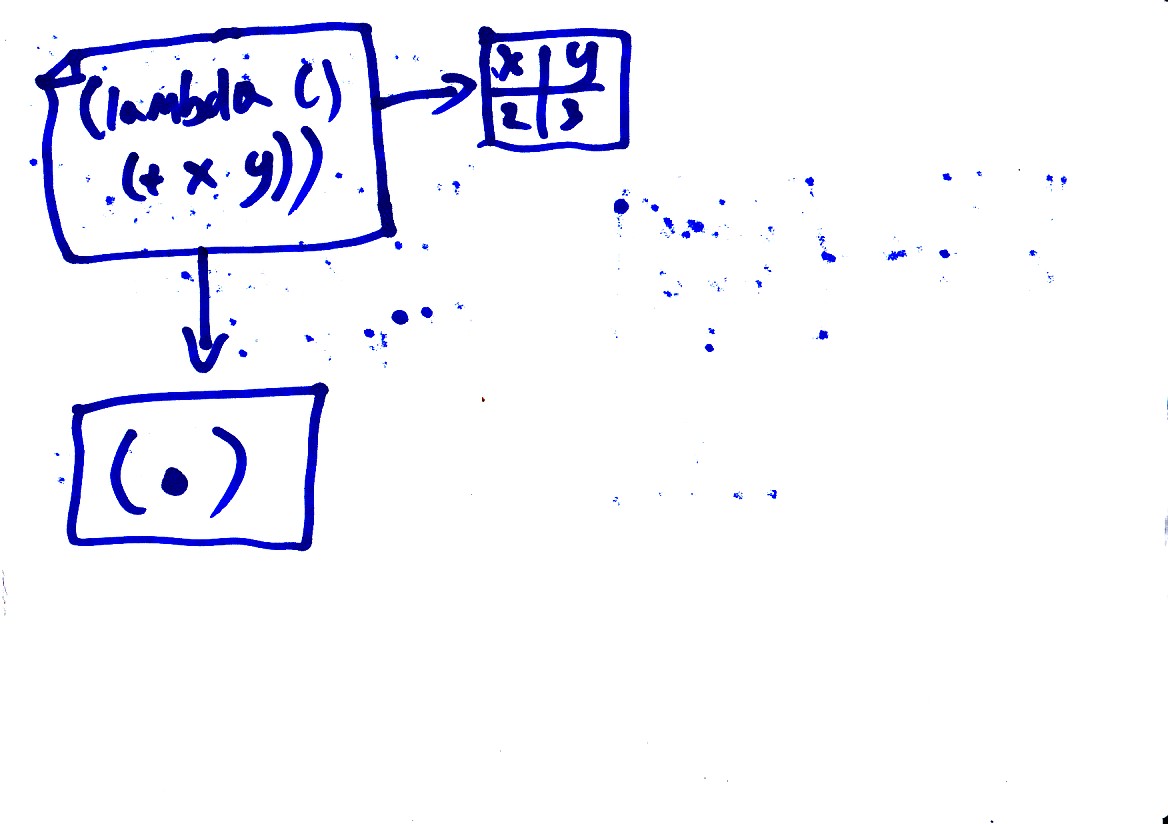 (lambda ()
(+ x y))
x y
2 3
( . )